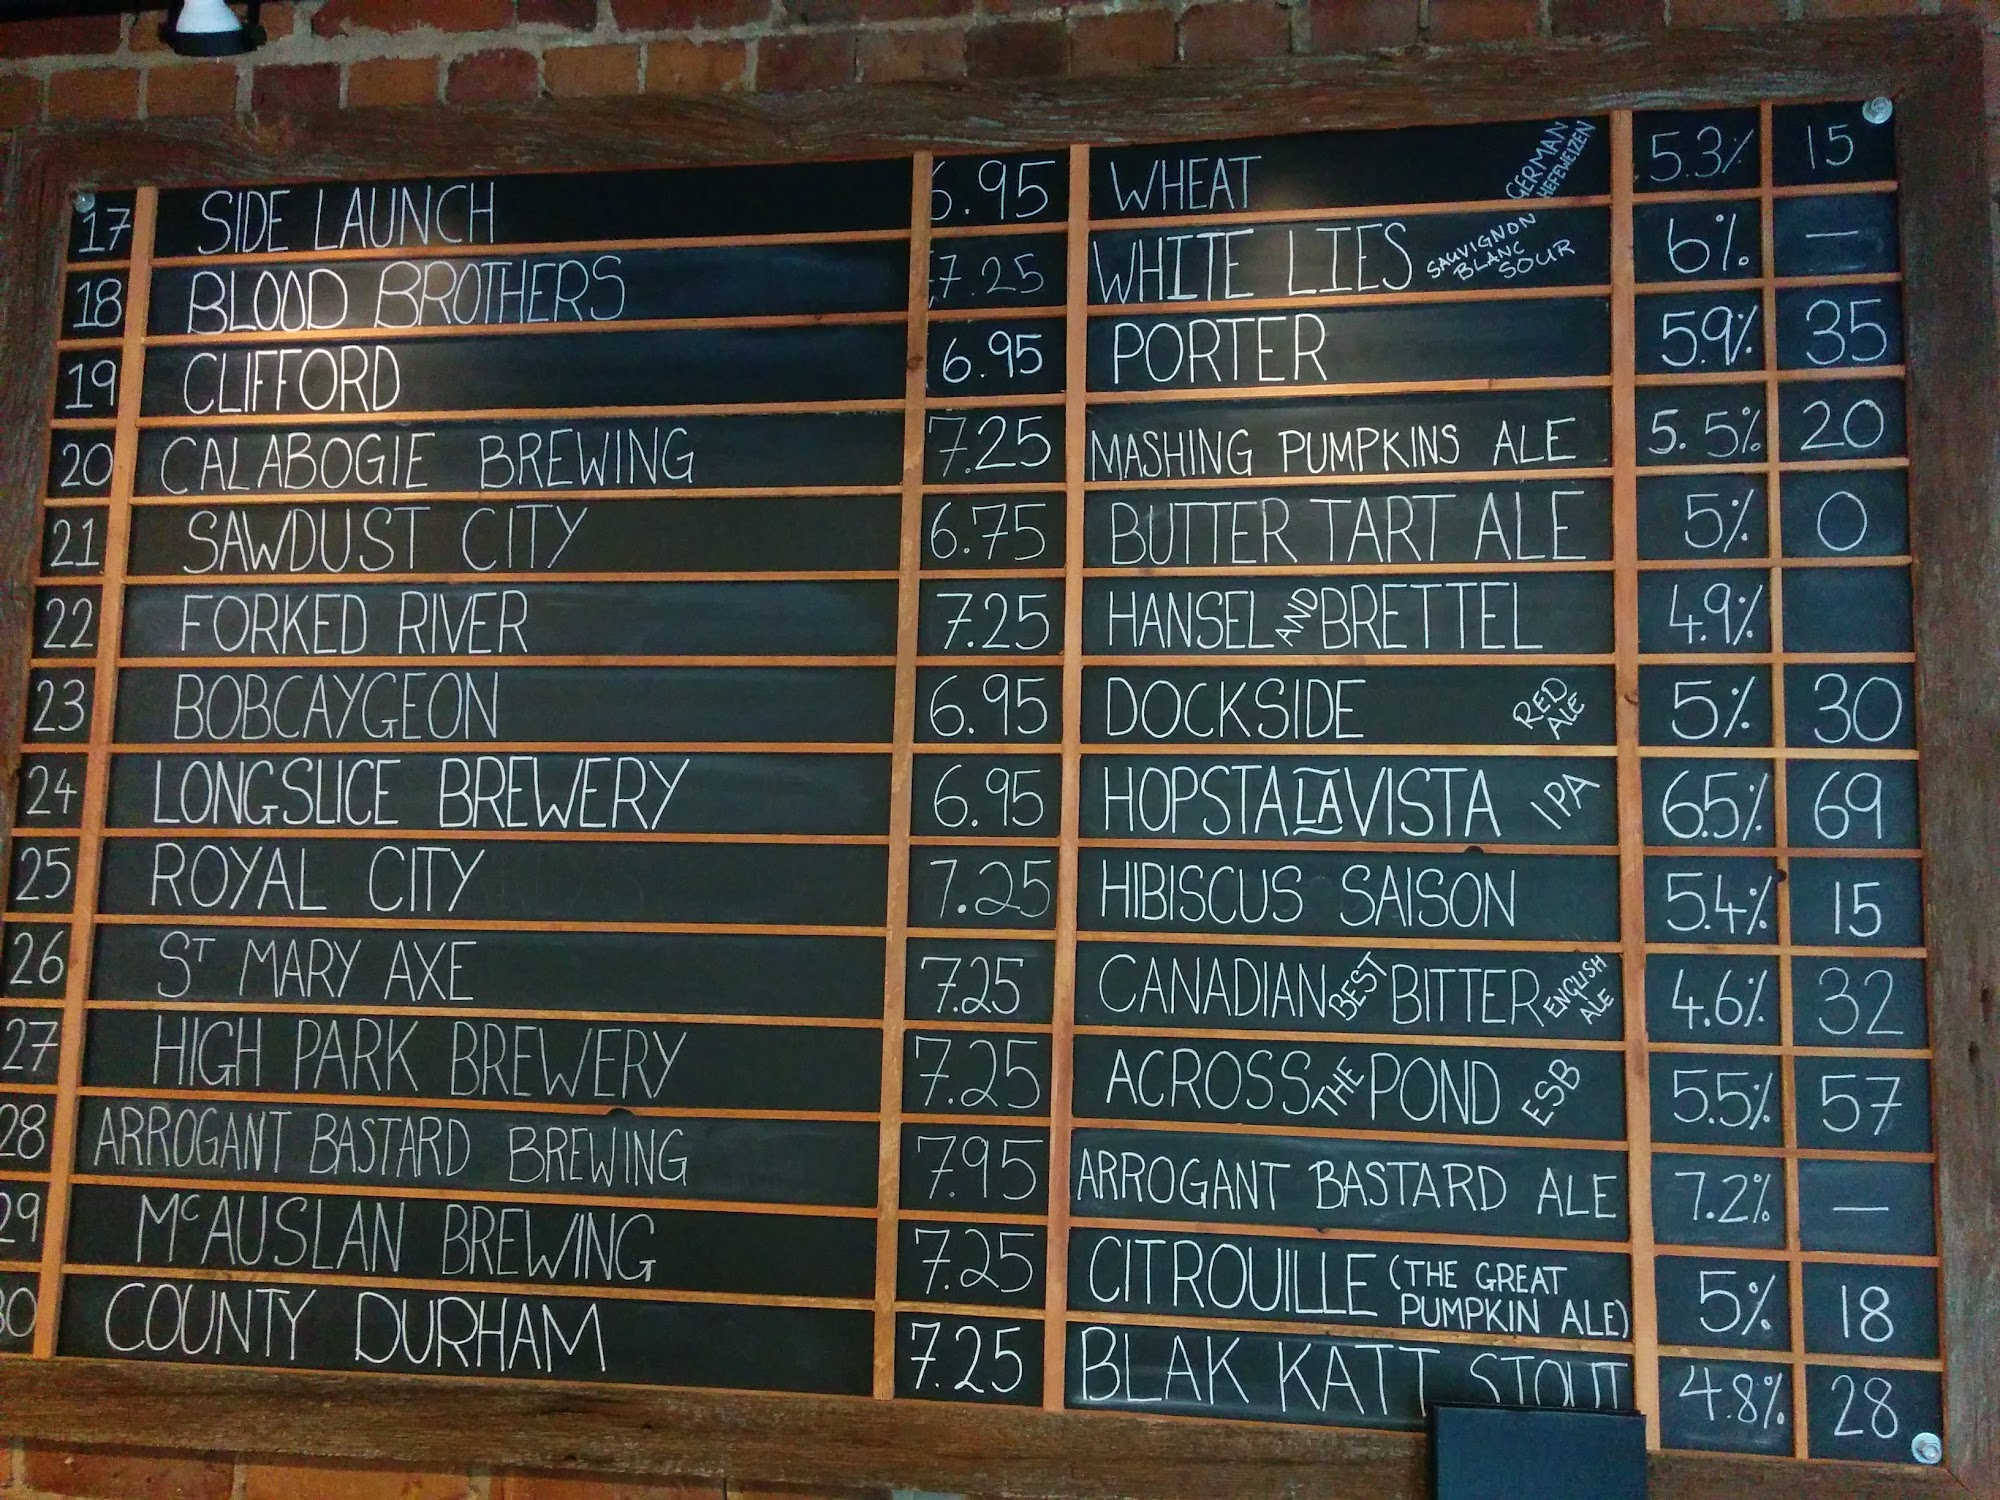 17 SIDE LAUNCH 6.95 WHEAT GERMAN HEFEWEIZEN 5.3% 15
18 BLOOD BROTHERS 7.25 WHITE LIES SAUVIGNON BLANC SOUR 6% —
19 CLIFFORD 6.95 PORTER 5.9% 35
20 CALABOGIE BREWING 7.25 MASHING PUMPKINS ALE 5.5% 20
21 SAWDUST CITY 6.75 BUTTER TART ALE 5% 0
22 FORKED RIVER 7.25 HANSEL AND BRETTEL 4.9%
23 BOBCAYGEON 6.95 DOCKSIDE RED ALE 5% 30
24 LONGSLICE BREWERY 6.95 HOPSTA LA VISTA IPA 6.5% 69
25 ROYAL CITY 7.25 HIBISCUS SAISON 5.4% 15
26 ST MARY AXE 7.25 CANADIAN BEST BITTER ENGLISH ALE 4.6% 32
27 HIGH PARK BREWERY 7.25 ACROSS THE POND ESB 5.5% 57
28 ARROGANT BASTARD BREWING 7.95 ARROGANT BASTARD ALE 7.2% —
29 McAUSLAN BREWING 7.25 CITROUILLE (THE GREAT PUMPKIN ALE) 5% 18
30 COUNTY DURHAM 7.25 BLAK KATT STOUT 4.8% 28